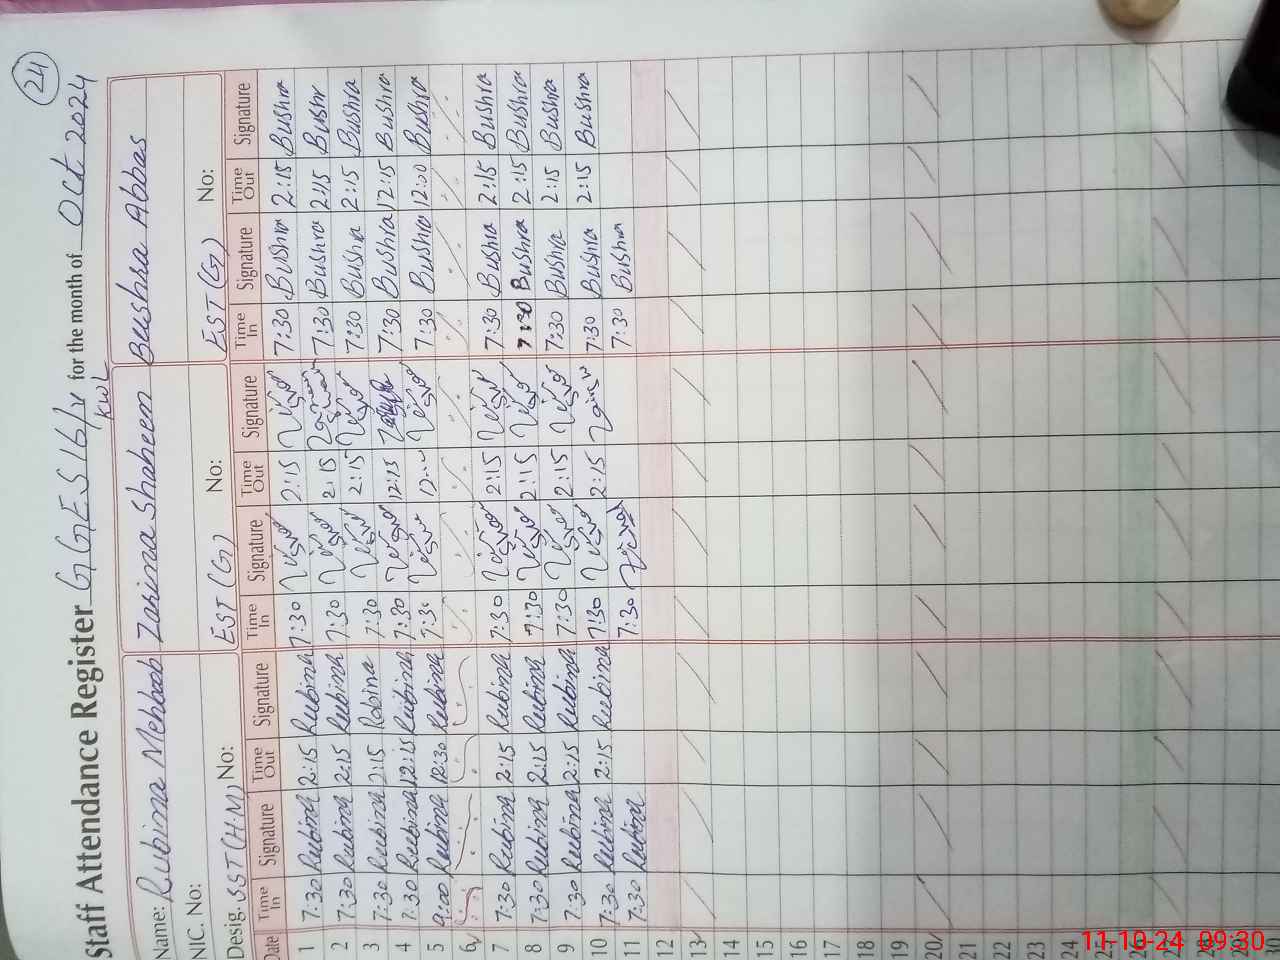 24
Staff Attendance Register GGES 16/V KWL for the month of Oct 2024
Name: Rubina Mehboob Zarina Shaheen Bushra Abbas
NIC. No:
Desig. SST(H.M) No: EST(G) No: EST(G) No:
Date Time In Signature Time Out Signature Time In Signature Time Out Signature Time In Signature Time Out Signature
1 7:30 Rubina 2:15 Rubina 7:30 2:15 7:30 Bushra 2:15 Bushra
2 7:30 Rubina 2:15 Rubina 7:30 2:15 7:30 Bushra 2:15 Bushr
3 7:30 Rubina 2:15 Robina 7:30 2:15 7:30 Bushra 2:15 Bushra
4 7:30 Rubina 12:15 Rubina 7:30 12:15 7:30 Bushra 12:15 Bushra
5 9:00 Rubina 12:30 Rubina 7:30 7:30 Bushra 12:00 Bushra
6
7 7:30 Rubina 2:15 Rubina 7:30 2:15 7:30 Bushra 2:15 Bushra
8 7:30 Rubina 2:15 Rubina 7:30 2:15 7:30 Bushra 2:15 Bushra
9 7:30 Rubina 2:15 Rubina 7:30 2:15 7:30 Bushra 2:15 Bushra
10 7:30 Rubina 2:15 Rubina 7:30 2:15 7:30 Bushra 2:15 Bushra
11 7:30 Rubina 7:30 7:30 Bushra
12
13
14
15
16
17
18
19
20
21
22
23
24
25
26
27
28
29
30
11-10-24 09:30